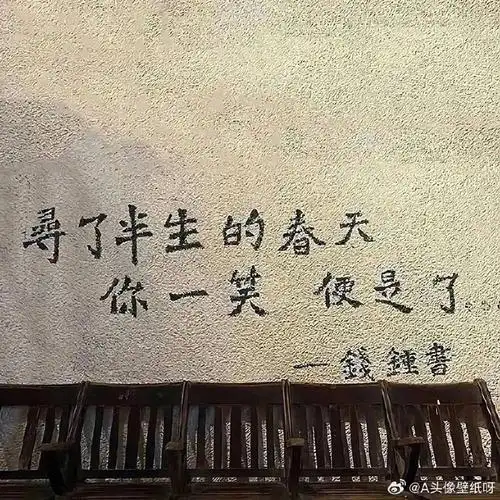 尋了半生的春天
你一笑 便是了。。
一錢鍾書
@A头像壁纸呀